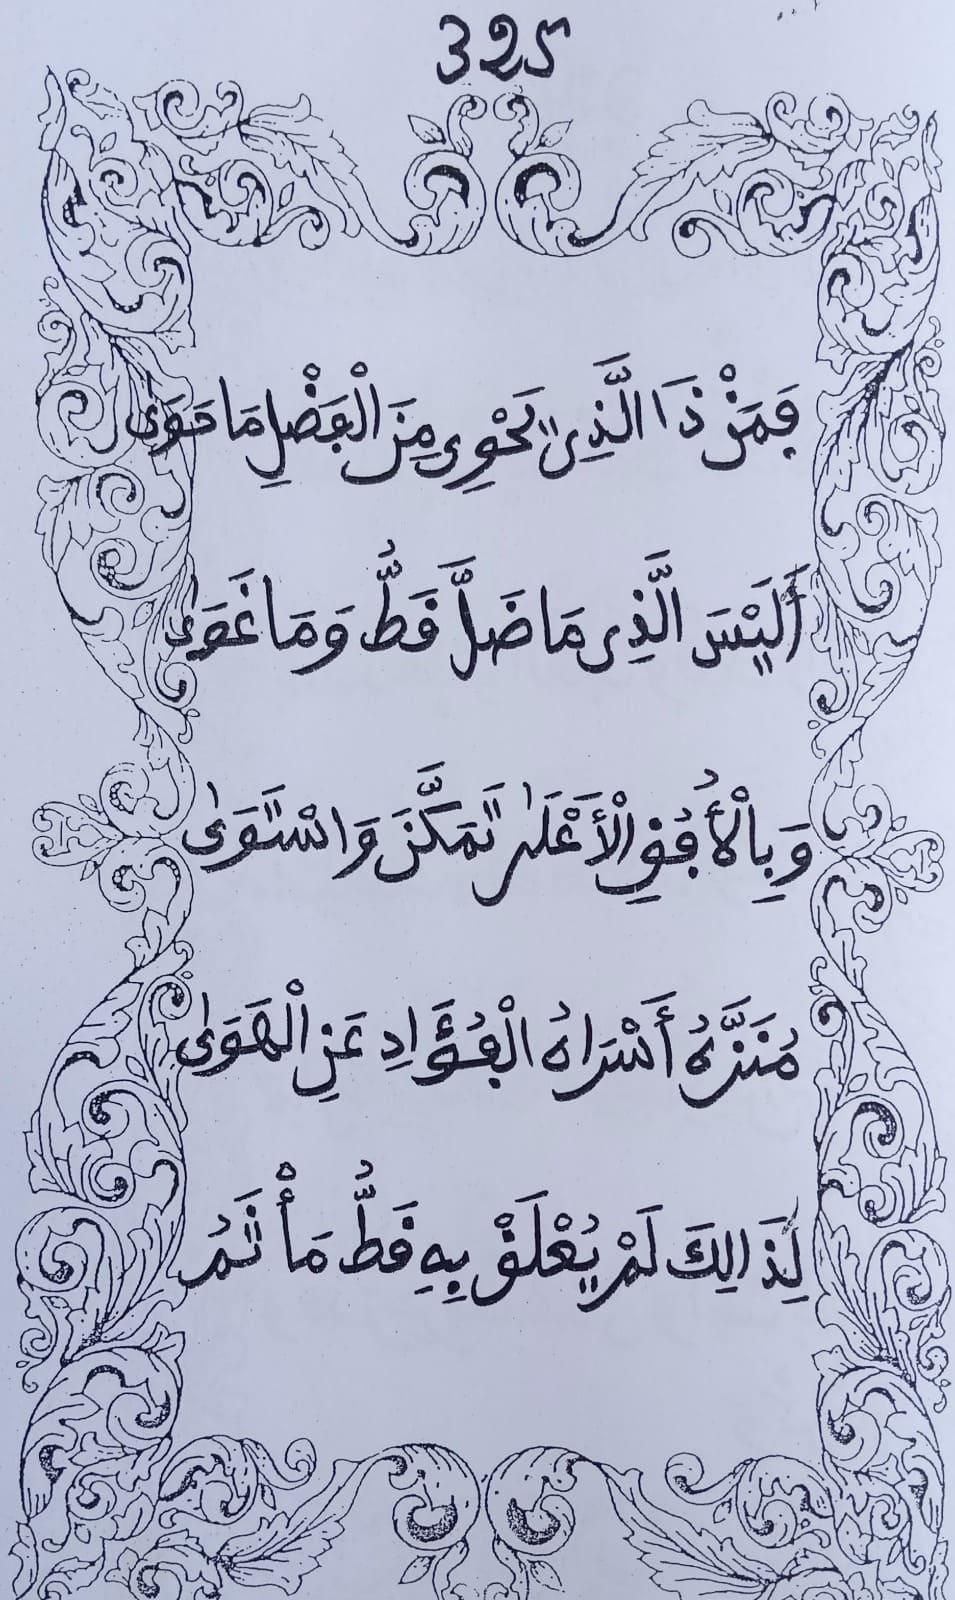 325
فَمَنْ ذَا الَّذِي يَحْوِي مِنَ الْفَضْلِ مَا حَوَى
أَلَيْسَ الَّذِي مَا ضَلَّ قَطُّ وَمَا غَوَى
وَبِالْأُفُقِ الْأَعْلَى تَمَكَّنَ وَاسْتَوَى
مُنَزَّهُ أَسْرَاهُ الْفُؤَادِ عَنِ الْهَوَى
لِذَالِكَ لَمْ يُعْلَقْ بِهِ قَطُّ مَأْثَمُ